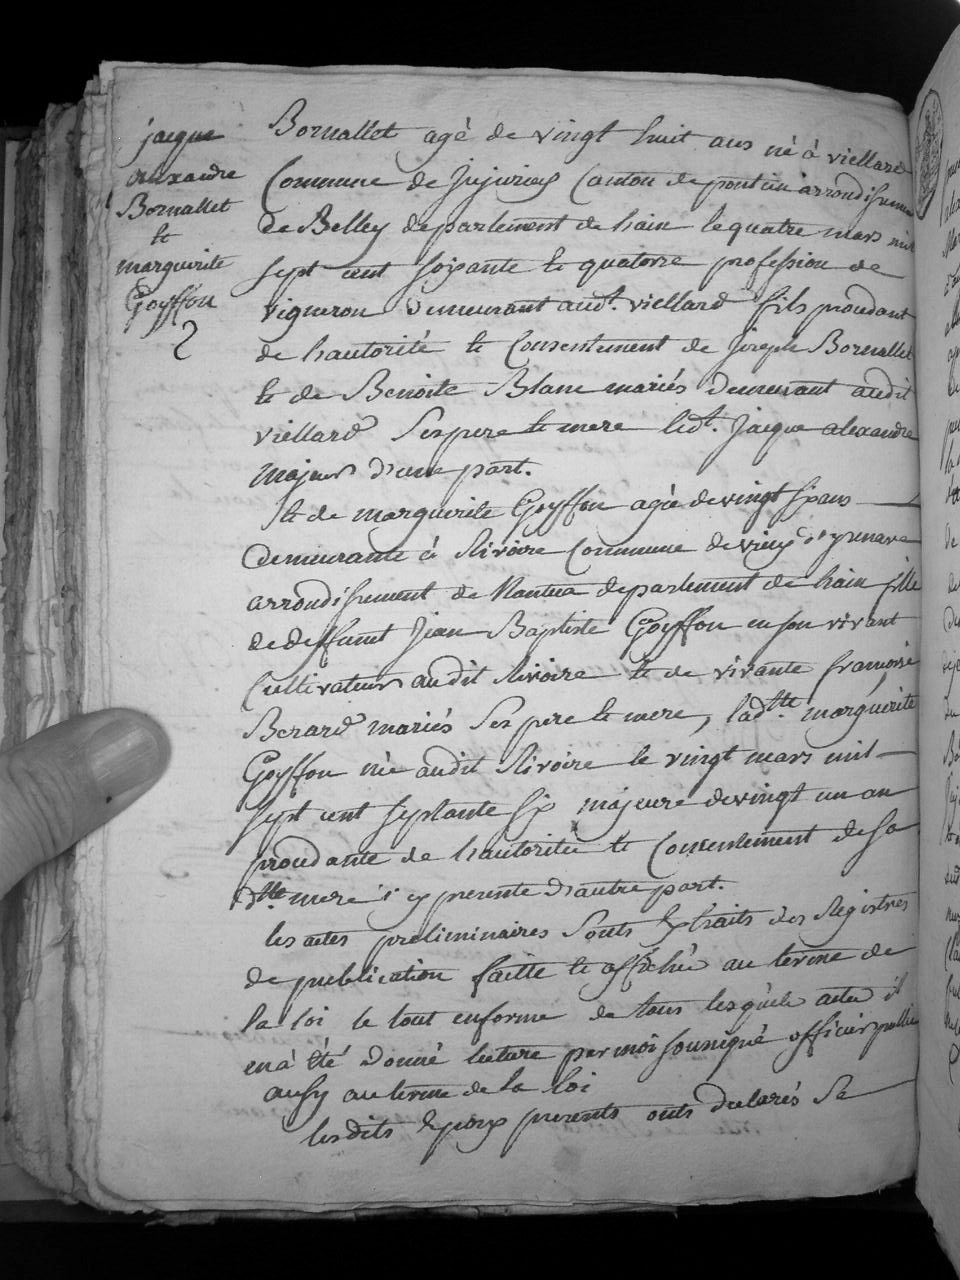 jacque
alexandre
Bornallet
et
marguerite
Goyffon
Bornallet agé de vingt huit ans né à viellard
Commune de Jujurieux Canton de pontin arrondissement
de Belley departement de hain le quatre mars mil
sept cent soixante et quatorze profession de
vigneron demeurant aud.t viellard fils proudant
de hautorité et Consentement de Joseph Bornallet
et de Benoite Blanc mariés demeurant audit
viellard Ses pere et mere led.t Jacque alexandre
majeur d'une part.
Et de marguerite Goyffon agée de vingt six ans
demeurante à Rivoire Commune de vieux d'yzenave
arrondissement de Nantua departement de hain fille
de deffunct Jean Baptiste Goyffon en son vivant
Cultivateur audit Rivoire et de vivante francoise
Berard mariés Ses pere et mere, lad.tte marguerite
Goyffon née audit Rivoire le vingt mars mil
sept cent septante six majeure de vingt un an
proudante de hautoritée et Consentement de sa
d.tte mere icy presente d'autre part.
les actes preliminaires Sonts Extraits des Registres
de publication faitte et affichée au terme de
la loi le tout en forme de tous lesquels actes il
en a été donné lecture par moi sousigné officier public
aussy au terme de la loi
lesdits Epoux presents onts declarés Se